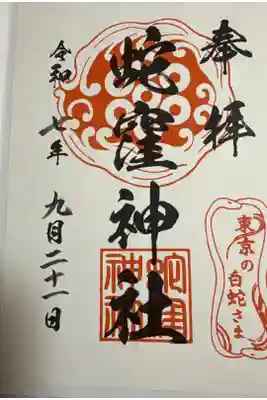 奉拝
蛇窪神社
令和七年 九月二十一日
東京の
白蛇さま
蛇窪
神社